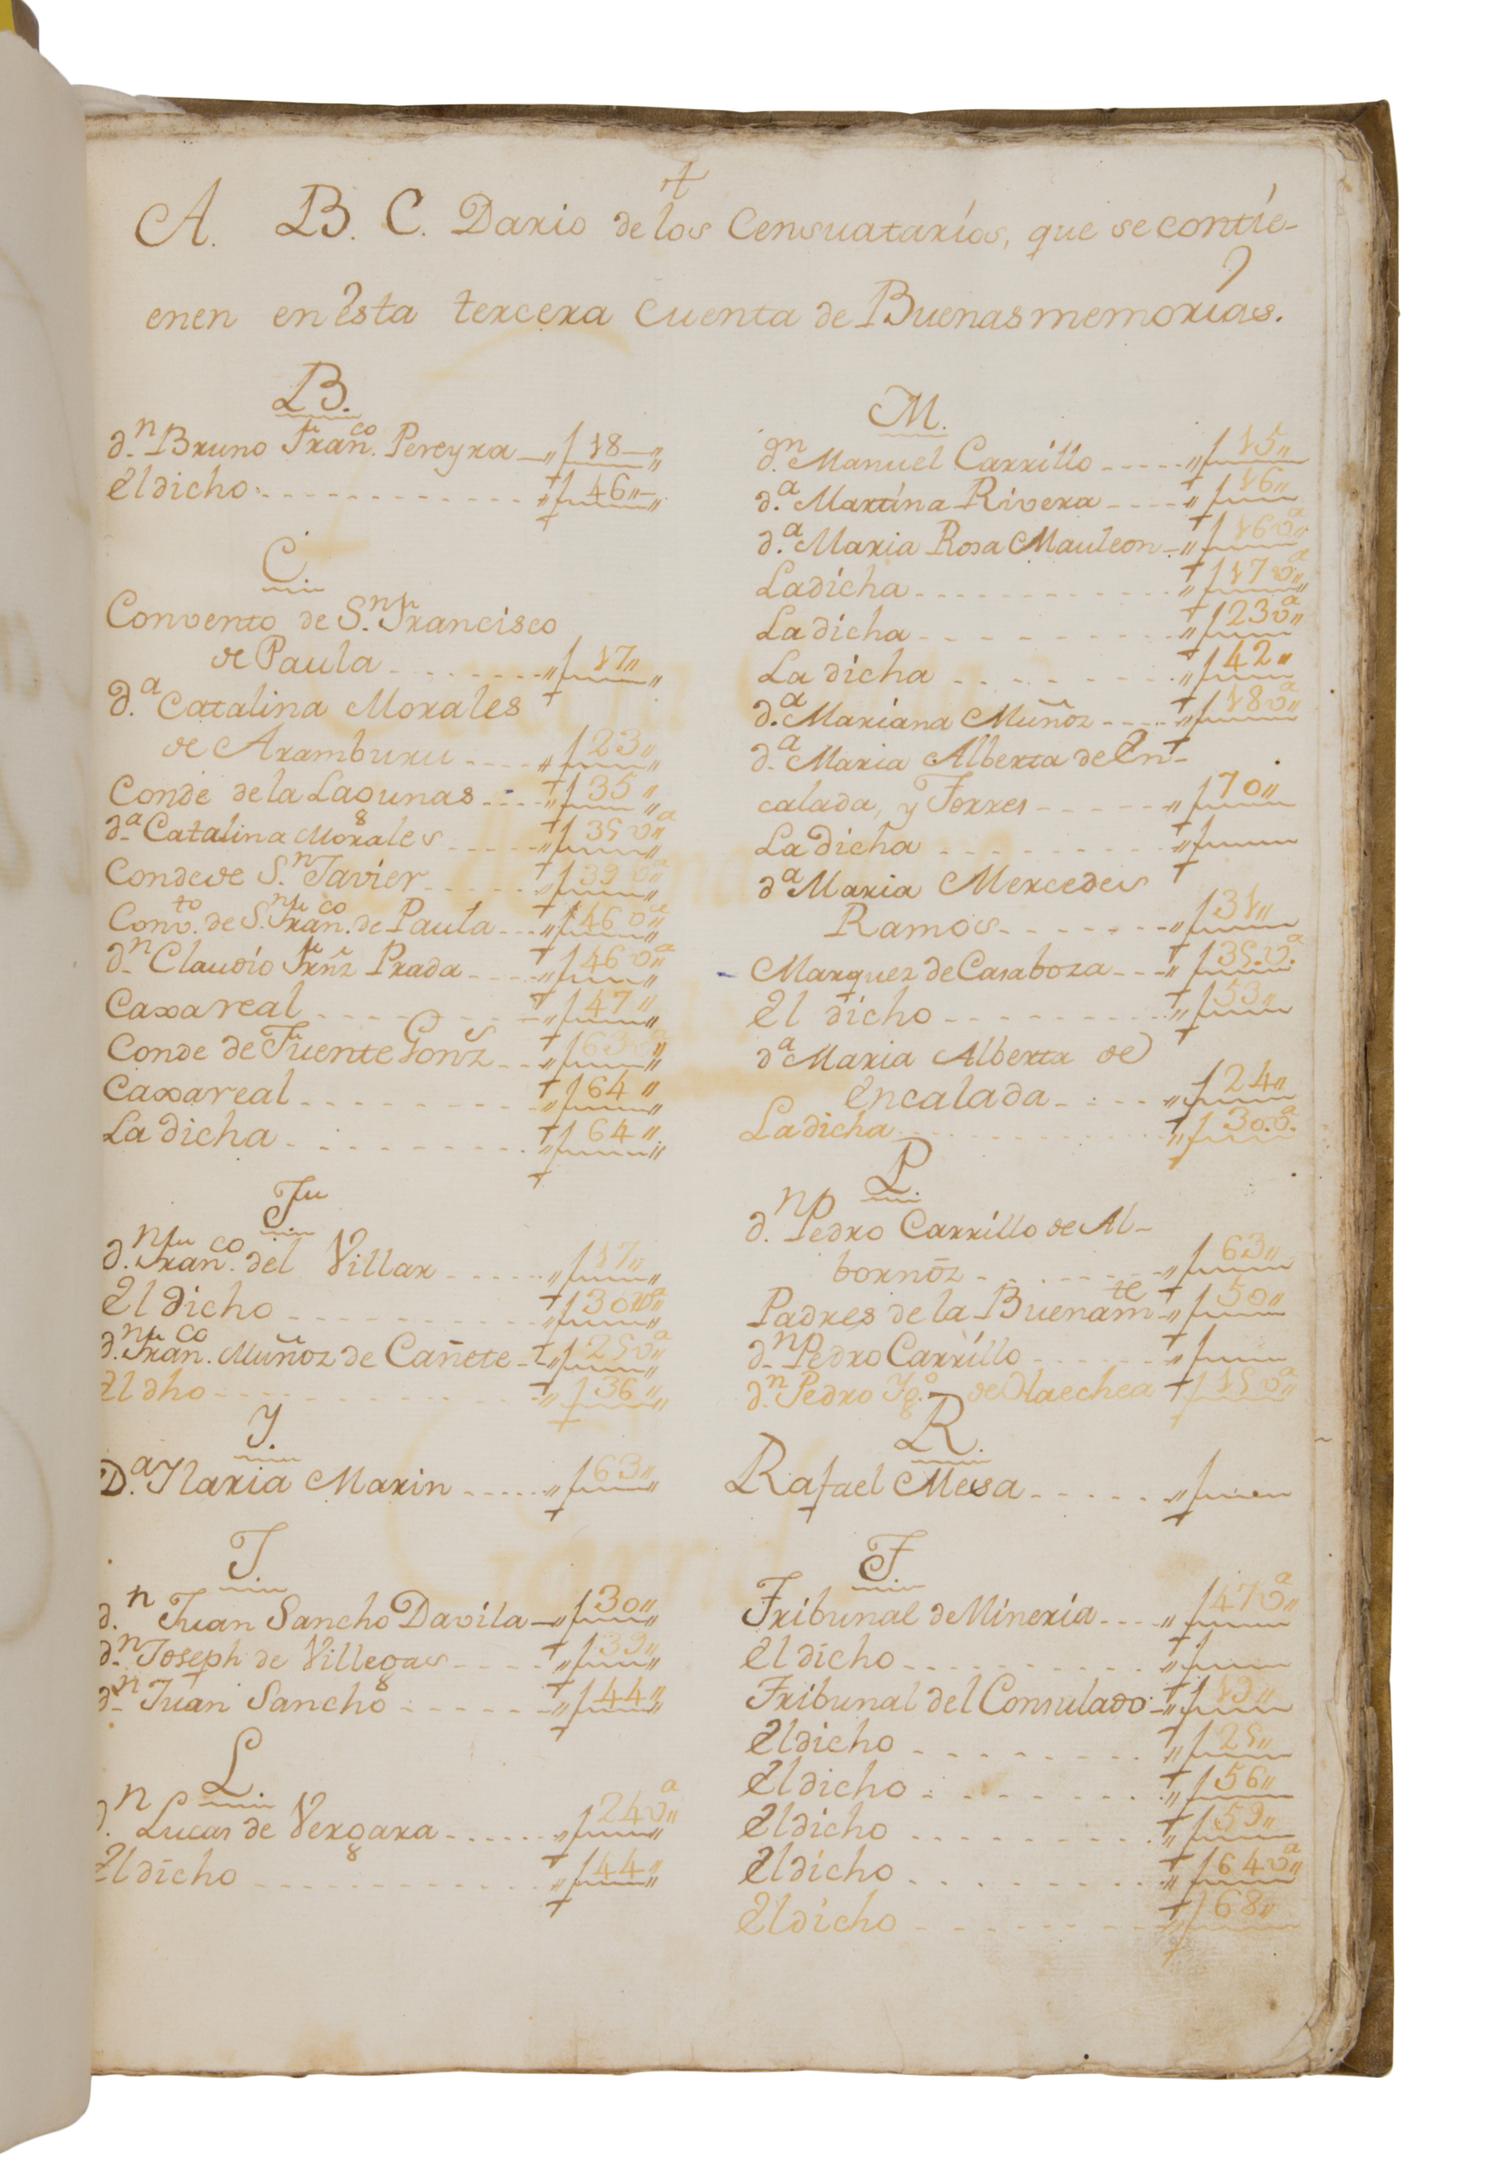 +
A. B. C. Dario de los Censuatarios, que se contie-
enen en esta tercera cuenta de Buenas memorias.
B.
d.n Bruno Fran.co Pereyra 18
El dicho 46
C.
Convento de S.n Francisco
de Paula 17
d.a Catalina Morales
de Aramburu 23
Conde de la Lagunas 35
d.a Catalina Morales 35 va
Conde de S.n Javier 39 va
Conv.to de S.n Fran.co de Paula 46 va
d.n Claudio Frñz Prada 46 va
Caxa real 47
Conde de Fuente Gonz 63 va
Caxa real 64
La dicha 64
F
d.n Fran.co del Villar 17
El dicho 30 va
d.n Fran.co Muñoz de Cañete 25 va
El dho 36
Y.
D.a Ylaria Marin 63
J.
d.n Juan Sancho Davila 30
d.n Joseph de Villegas 39
d.n Juan Sancho 44
L.
d.n Lucas de Vergara 24 va
El dicho 44
M.
d.n Manuel Carrillo 15
d.a Martina Rivera 16
d.a Maria Rosa Mauleon 16 va
La dicha 17 va
La dicha 23 va
La dicha 42
d.a Mariana Muñoz 18 va
d.a Maria Alberta de En-
calada, y Torres 70
La dicha
d.a Maria Mercedes
Ramos 31
Marquez de Casaboza 35. va
El dicho 53
d.a Maria Alberta de
Encalada 24
La dicha 30. va
P.
d.n Pedro Carrillo de Al-
bornoz 63
Padres de la Buenam.te 50
d.n Pedro Carrillo
d.n Pedro Yg.o de Olaechea 15 va
R.
Rafael Mesa
T.
Tribunal de Mineria 47 va
El dicho
Tribunal del Consulado 19
El dicho 25
El dicho 56
El dicho 59
El dicho 64 va
El dicho 68